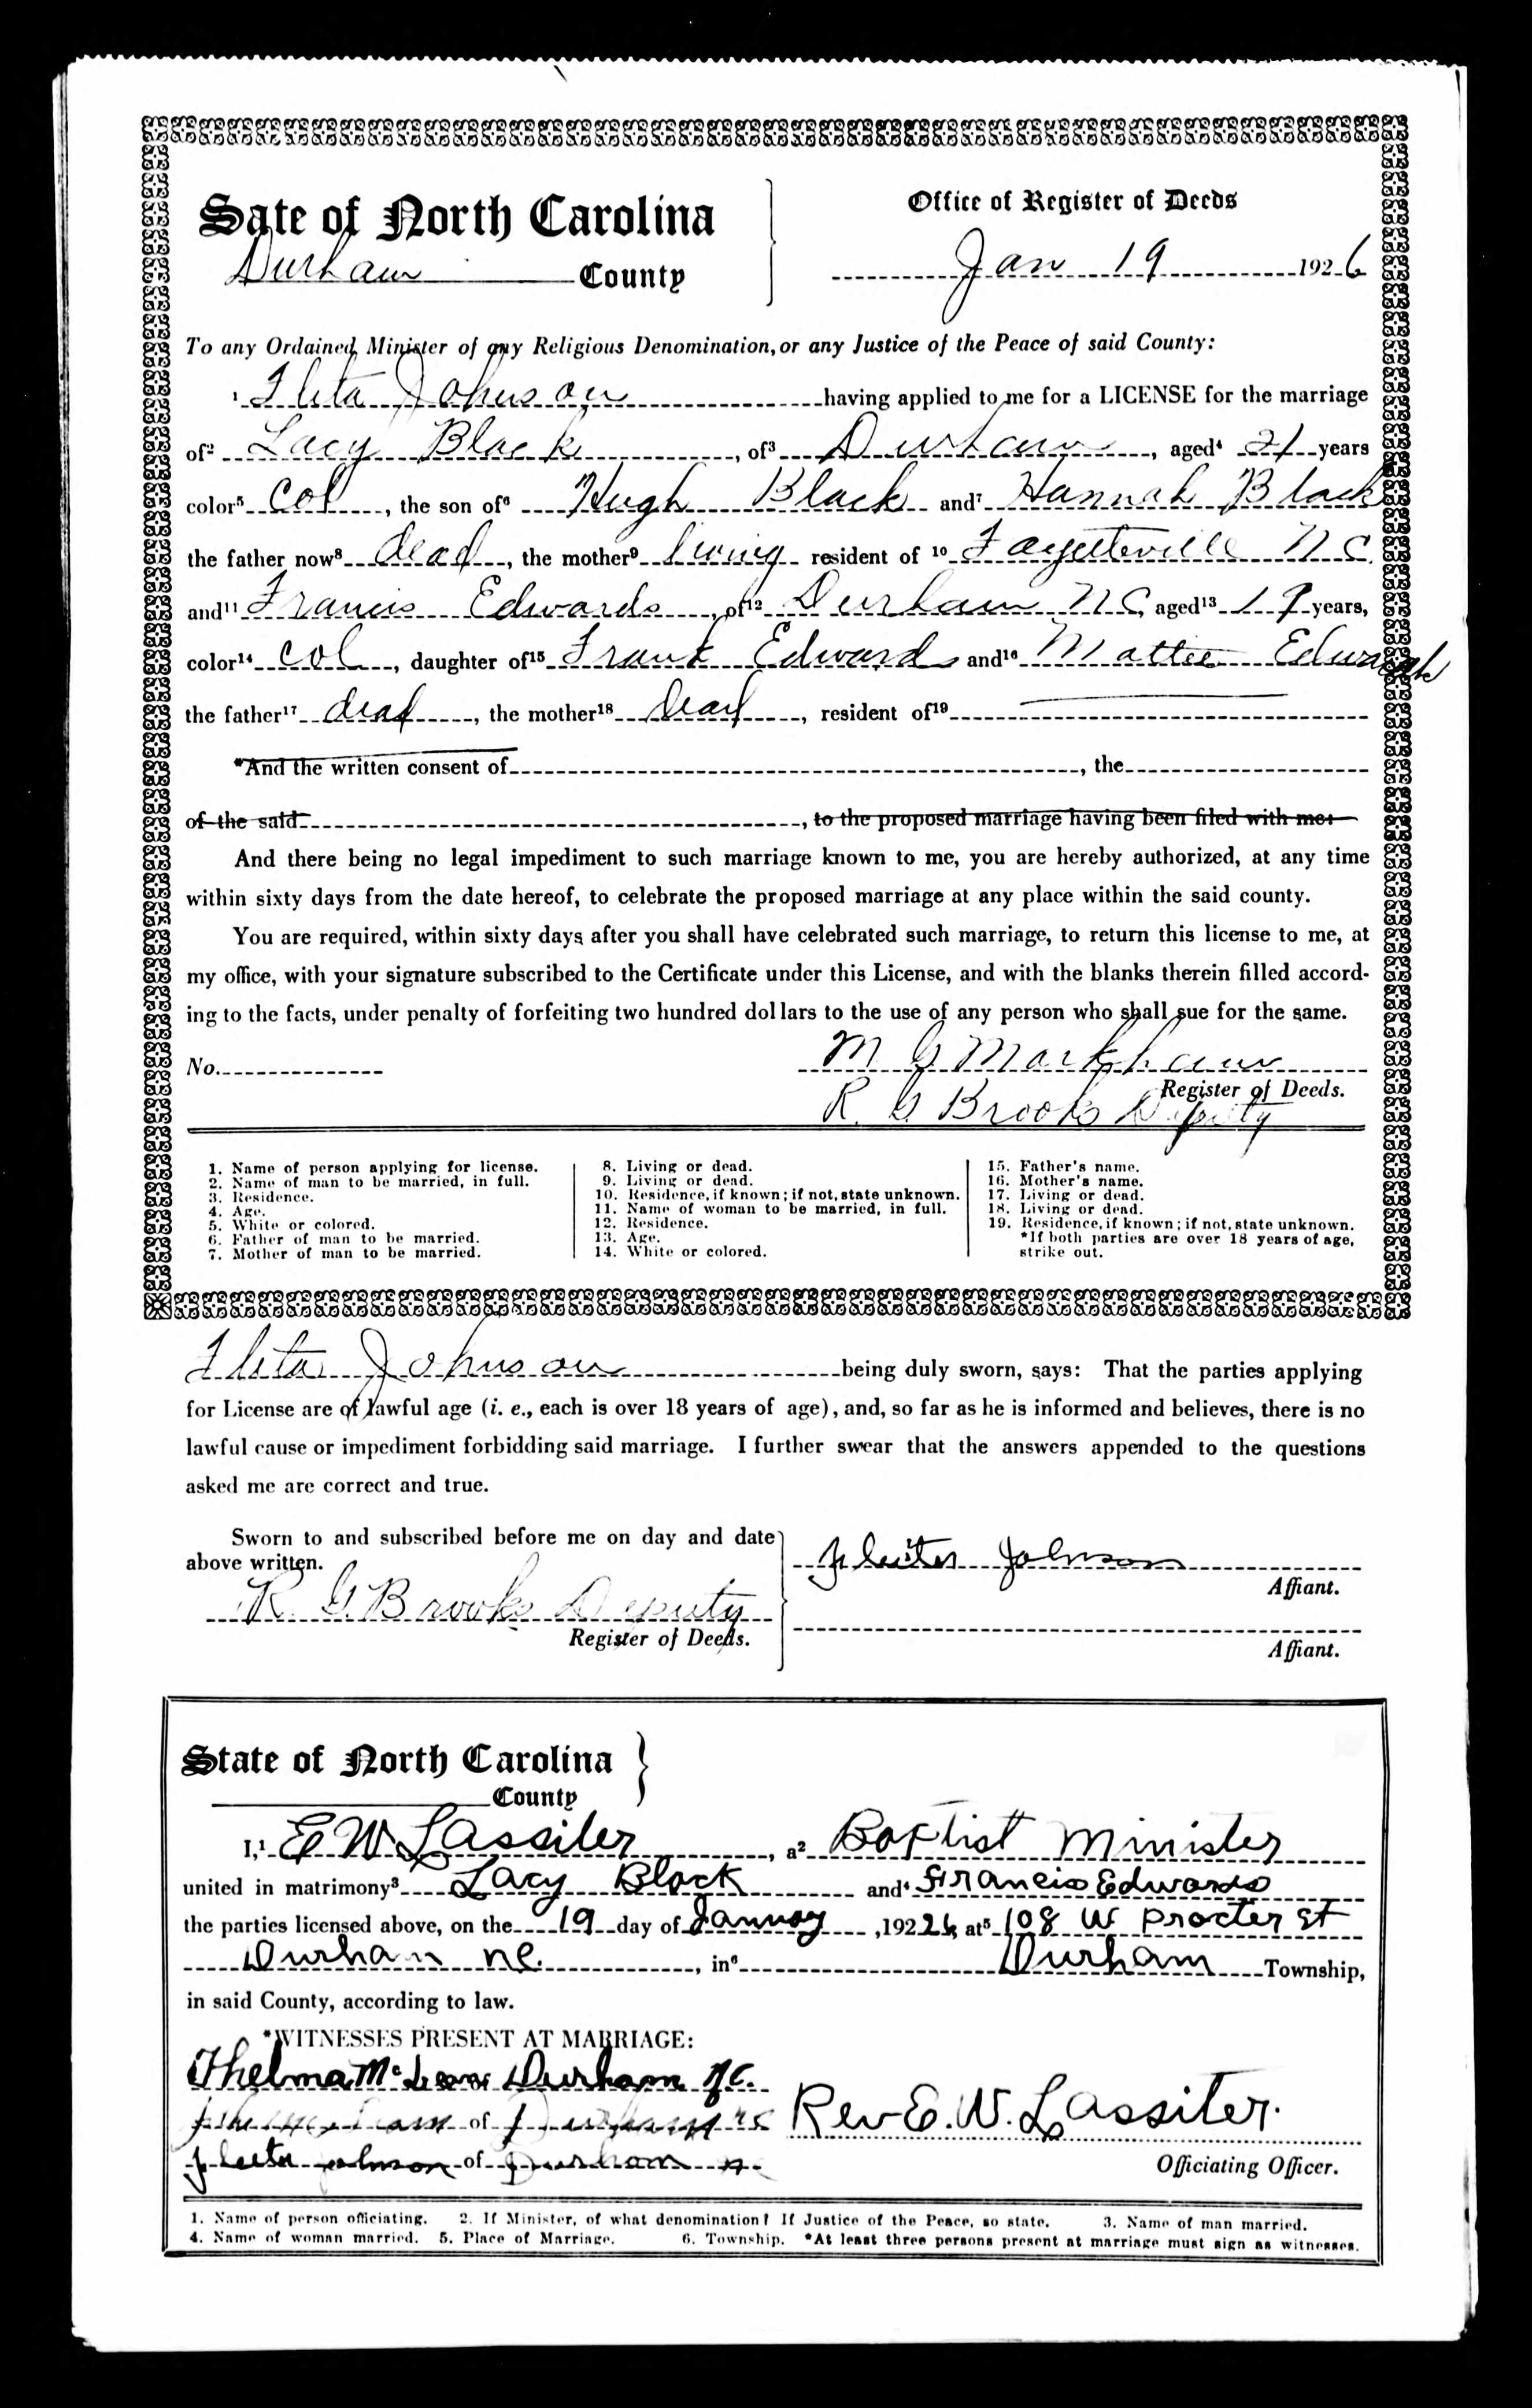 Sate of North Carolina
Durham County
Office of Register of Deeds
Jan 19 1926
To any Ordained Minister of any Religious Denomination, or any Justice of the Peace of said County:
1 Fleta Johnson having applied to me for a LICENSE for the marriage
of2 Lacy Black, of3 Durham, aged4 21 years
color5 Col, the son of6 Hugh Black and7 Hannah Black
the father now8 dead, the mother9 living resident of 10 Fayetteville NC
and11 Francis Edwards, of12 Durham NC, aged13 19 years,
color14 Col, daughter of15 Frank Edwards and16 Mattie Edwards
the father17 dead, the mother18 dead, resident of19
*And the written consent of, the
of the said, to the proposed marriage having been filed with me:
And there being no legal impediment to such marriage known to me, you are hereby authorized, at any time
within sixty days from the date hereof, to celebrate the proposed marriage at any place within the said county.
You are required, within sixty days after you shall have celebrated such marriage, to return this license to me, at
my office, with your signature subscribed to the Certificate under this License, and with the blanks therein filled accord-
ing to the facts, under penalty of forfeiting two hundred dollars to the use of any person who shall sue for the same.
No.
M G Markham
Register of Deeds.
R. G Brooks Deputy
1. Name of person applying for license.
2. Name of man to be married, in full.
3. Residence.
4. Age.
5. White or colored.
6. Father of man to be married.
7. Mother of man to be married.
8. Living or dead.
9. Living or dead.
10. Residence, if known; if not, state unknown.
11. Name of woman to be married, in full.
12. Residence.
13. Age.
14. White or colored.
15. Father's name.
16. Mother's name.
17. Living or dead.
18. Living or dead.
19. Residence, if known; if not, state unknown.
*If both parties are over 18 years of age,
strike out.
Fleta Johnson being duly sworn, says: That the parties applying
for License are of lawful age (i. e., each is over 18 years of age), and, so far as he is informed and believes, there is no
lawful cause or impediment forbidding said marriage. I further swear that the answers appended to the questions
asked me are correct and true.
Sworn to and subscribed before me on day and date
above written.
R. G. Brooks Deputy
Register of Deeds.
Fleeter Johnson
Affiant.
Affiant.
State of North Carolina
County
I,1 E W Lassiter, a2 Baptist Minister
united in matrimony3 Lacy Black and4 Francis Edwards
the parties licensed above, on the 19 day of January, 19226, at5 108 W Procter st
Durham NC., in6 Durham Township,
in said County, according to law.
*WITNESSES PRESENT AT MARRIAGE:
Thelma McLean Durham N.C.
of Durham NC
Fleeter Johnson of Durham N
Rev E. W. Lassiter.
Officiating Officer.
1. Name of person officiating. 2. If Minister, of what denomination? If Justice of the Peace, so state. 3. Name of man married.
4. Name of woman married. 5. Place of Marriage. 6. Township. *At least three persons present at marriage must sign as witnesses.